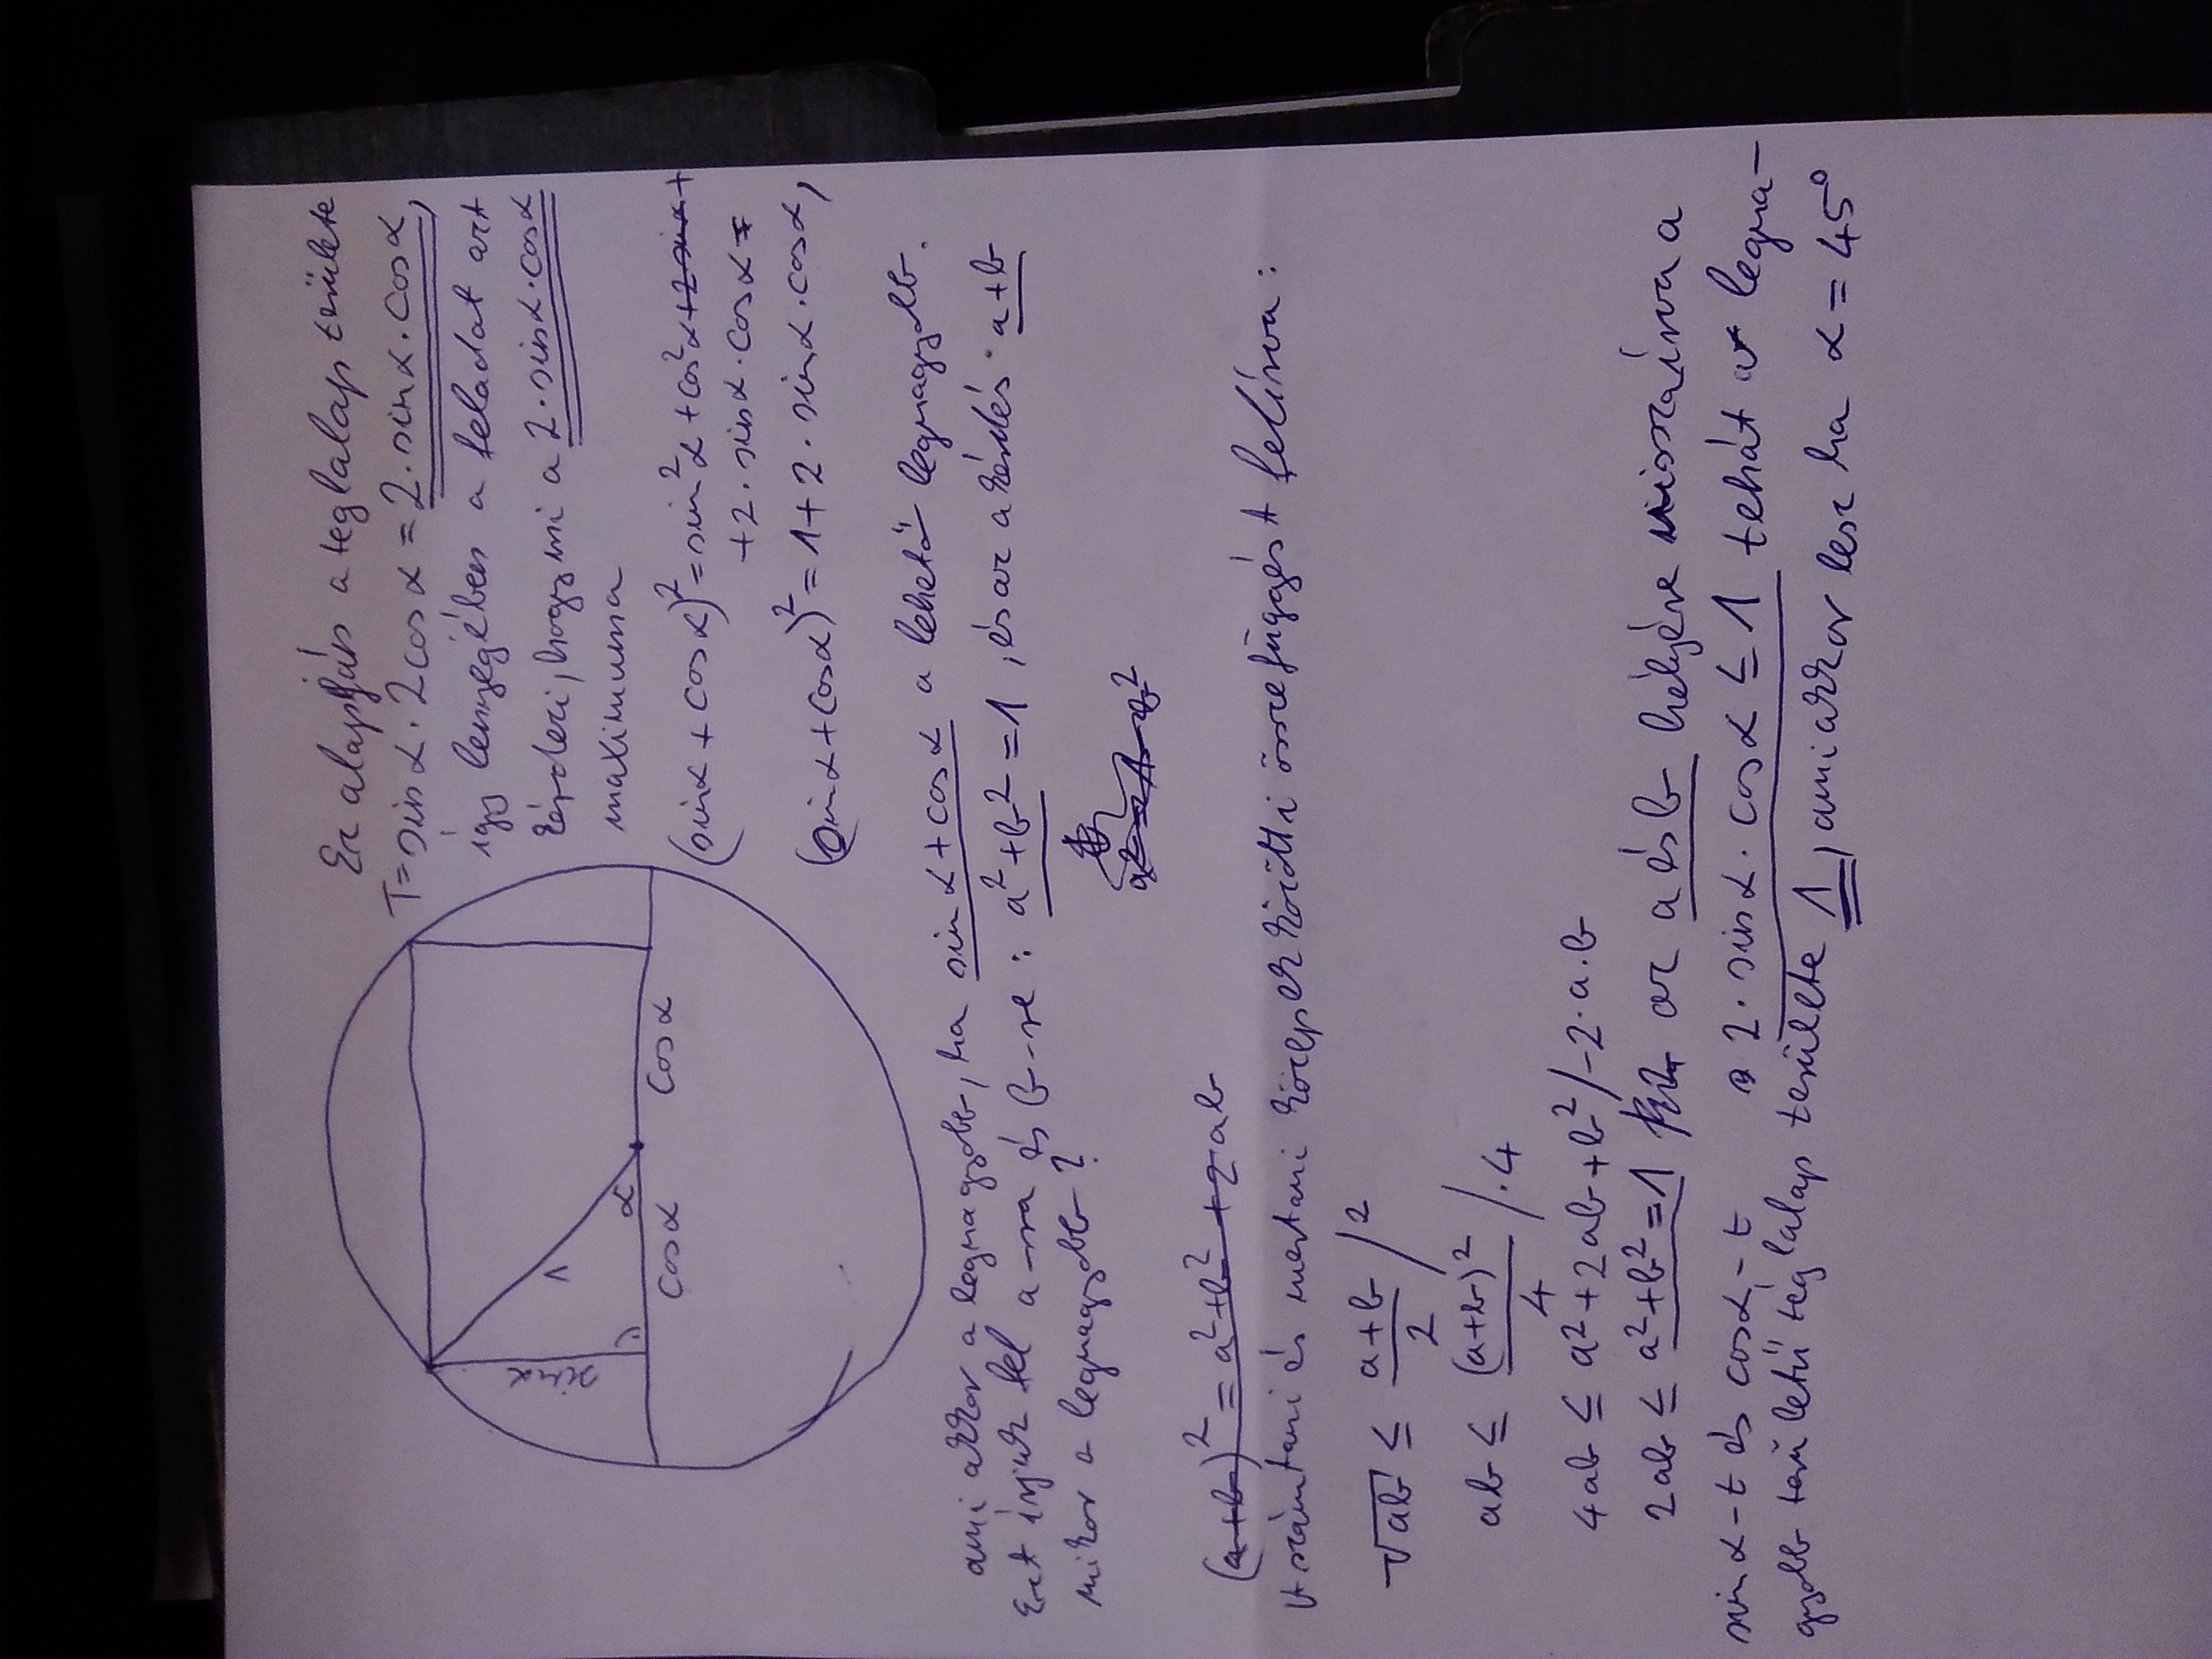 Ez alapján a téglalap területe
T=sinα·2cosα=2·sinα·cosα,
így lényegében a feladat azt
kérdezi, hogy mi a 2·sinα·cosα
maximuma
sinα
1
α
cosα
cosα
(sinα+cosα)²=sin²α+cos²α+2sinα+
+2·sinα·cosα=
(sinα+cosα)²=1+2·sinα·cosα,
ami akkor a legnagyobb, ha sinα+cosα a lehető legnagyobb.
Ezt írjuk fel a-ra és b-re: a²+b²=1, és az a kérdés a+b
mikor a legnagyobb?
(a+b)²=a²+b²+2ab
számtani és mértani közepek közötti összefüggést felírva:
√ab ≤ a+b/2 /²
ab ≤ (a+b)²/4 /·4
4ab ≤ a²+2ab+b² /-2·a·b
2ab ≤ a²+b²=1 az a és b helyére visszaírva a
sinα-t és cosα-t 2·sinα·cosα≤1 tehát a legna-
gyobb területű téglalap területe 1, ami akkor lesz ha α=45°